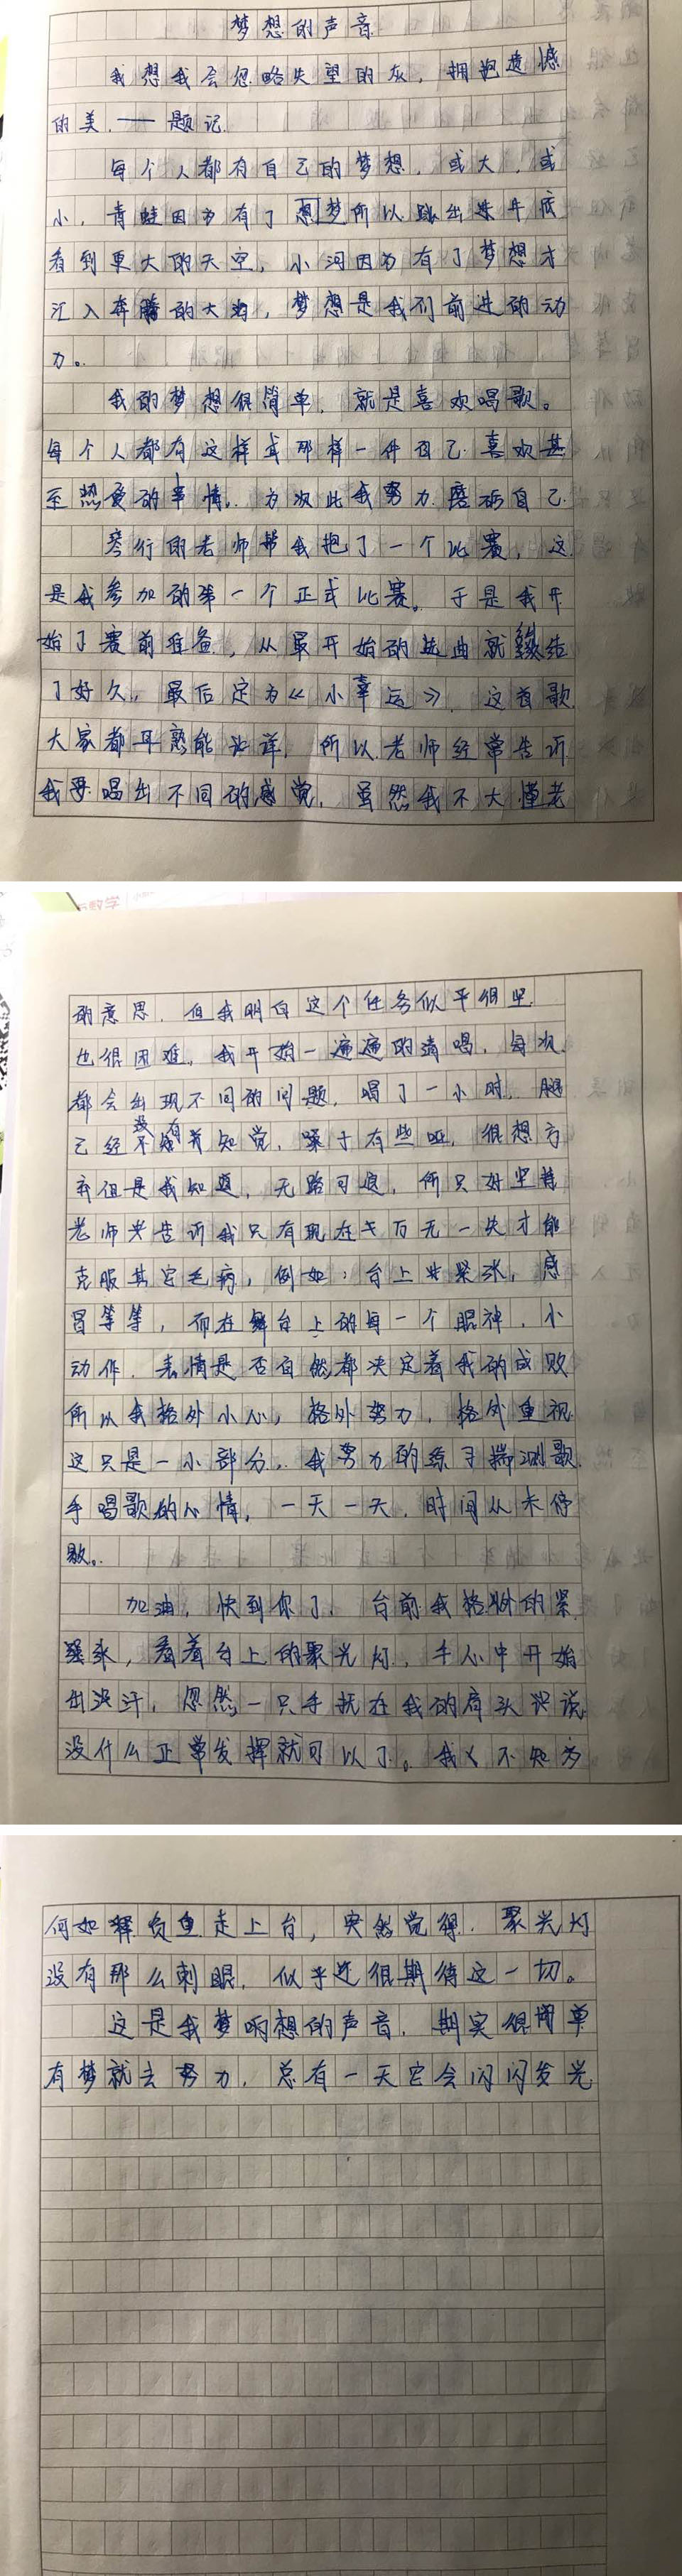 梦想的声音
我想我会忽略失望的灰，拥抱遗憾
的美.——题记.
每个人都有自己的梦想，或大，或
小，青蛙因为有了想梦所以跳出井底
看到更大的天空，小河因为有了梦想才
汇入奔腾的大海，梦想是我们前进的动
力。
我的梦想很简单，就是喜欢唱歌。
每个人都有这样或那样一件自己喜欢甚
至热爱的事情.为次此我努力磨砺自己.
琴行的老师帮我把了一个比赛，这
是我参加的第一个正式比赛。于是我开
始了赛前准备，从最开始的选曲就纠结
了好久，最后定为《小幸运》.这首歌
大家都耳熟能详，所以老师经常告诉
我要唱出不同的感觉，虽然我不大懂老
的意思，但我明白这个任务似乎很坚
也很困难，我开始一遍遍的清唱，每次
都会出现不同的问题，唱了一小时，腿
已经没有知觉，嗓子有些哑，很想方
弃但是我知道，无路可退，所只好坚持
老师告诉我只有现在千万无一失才能
克服其它毛病，例如：台上紧张，感
冒等等，而在舞台上的每一个眼神，小
动作，表情是否自然都决定着我的成败
所以我格外小心，格外努力，格外重视
这只是一小部分，我努力的练习揣测歌
手唱歌的心情，一天一天，时间从未停
歇。
加油，快到你了，台前我格外的紧
张，看着台上的聚光灯，手心中开始
出汗，忽然一只手抚在我的肩头说
没什么正常发挥就可以了。我不知为
何如释负重走上台，突然觉得，聚光灯
没有那么刺眼，似乎还很期待这一切。
这是我梦响想的声音，期实很简单
有梦就去努力，总有一天它会闪闪发光